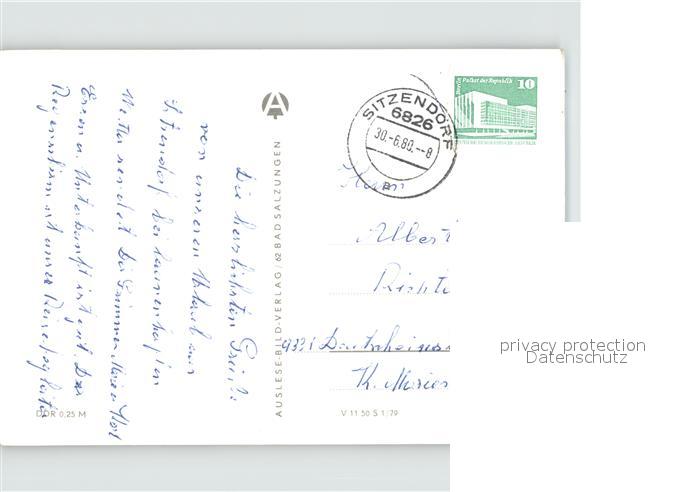 Die herzlichsten Grüße
von unserem Urlaub aus
Sitzendorf bei launenhaften
Wetter sendet Dir
Essen u. Unterkunft ist gut. Der
Regenschirm ist unser Reisebegleiter
DDR 0,25 M
AUSLESE-BILD-VERLAG/62 BAD SALZUNGEN
V 11 50 S 1/79
Berlin Palast der Republik
10
DEUTSCHE DEMOKRATISCHE REPUBLIK
SITZENDORF
6826
30.-6.80.--8
a
Herrn
Albert
9331 Deutschneu
K. Marien
privacy protection
Datenschutz